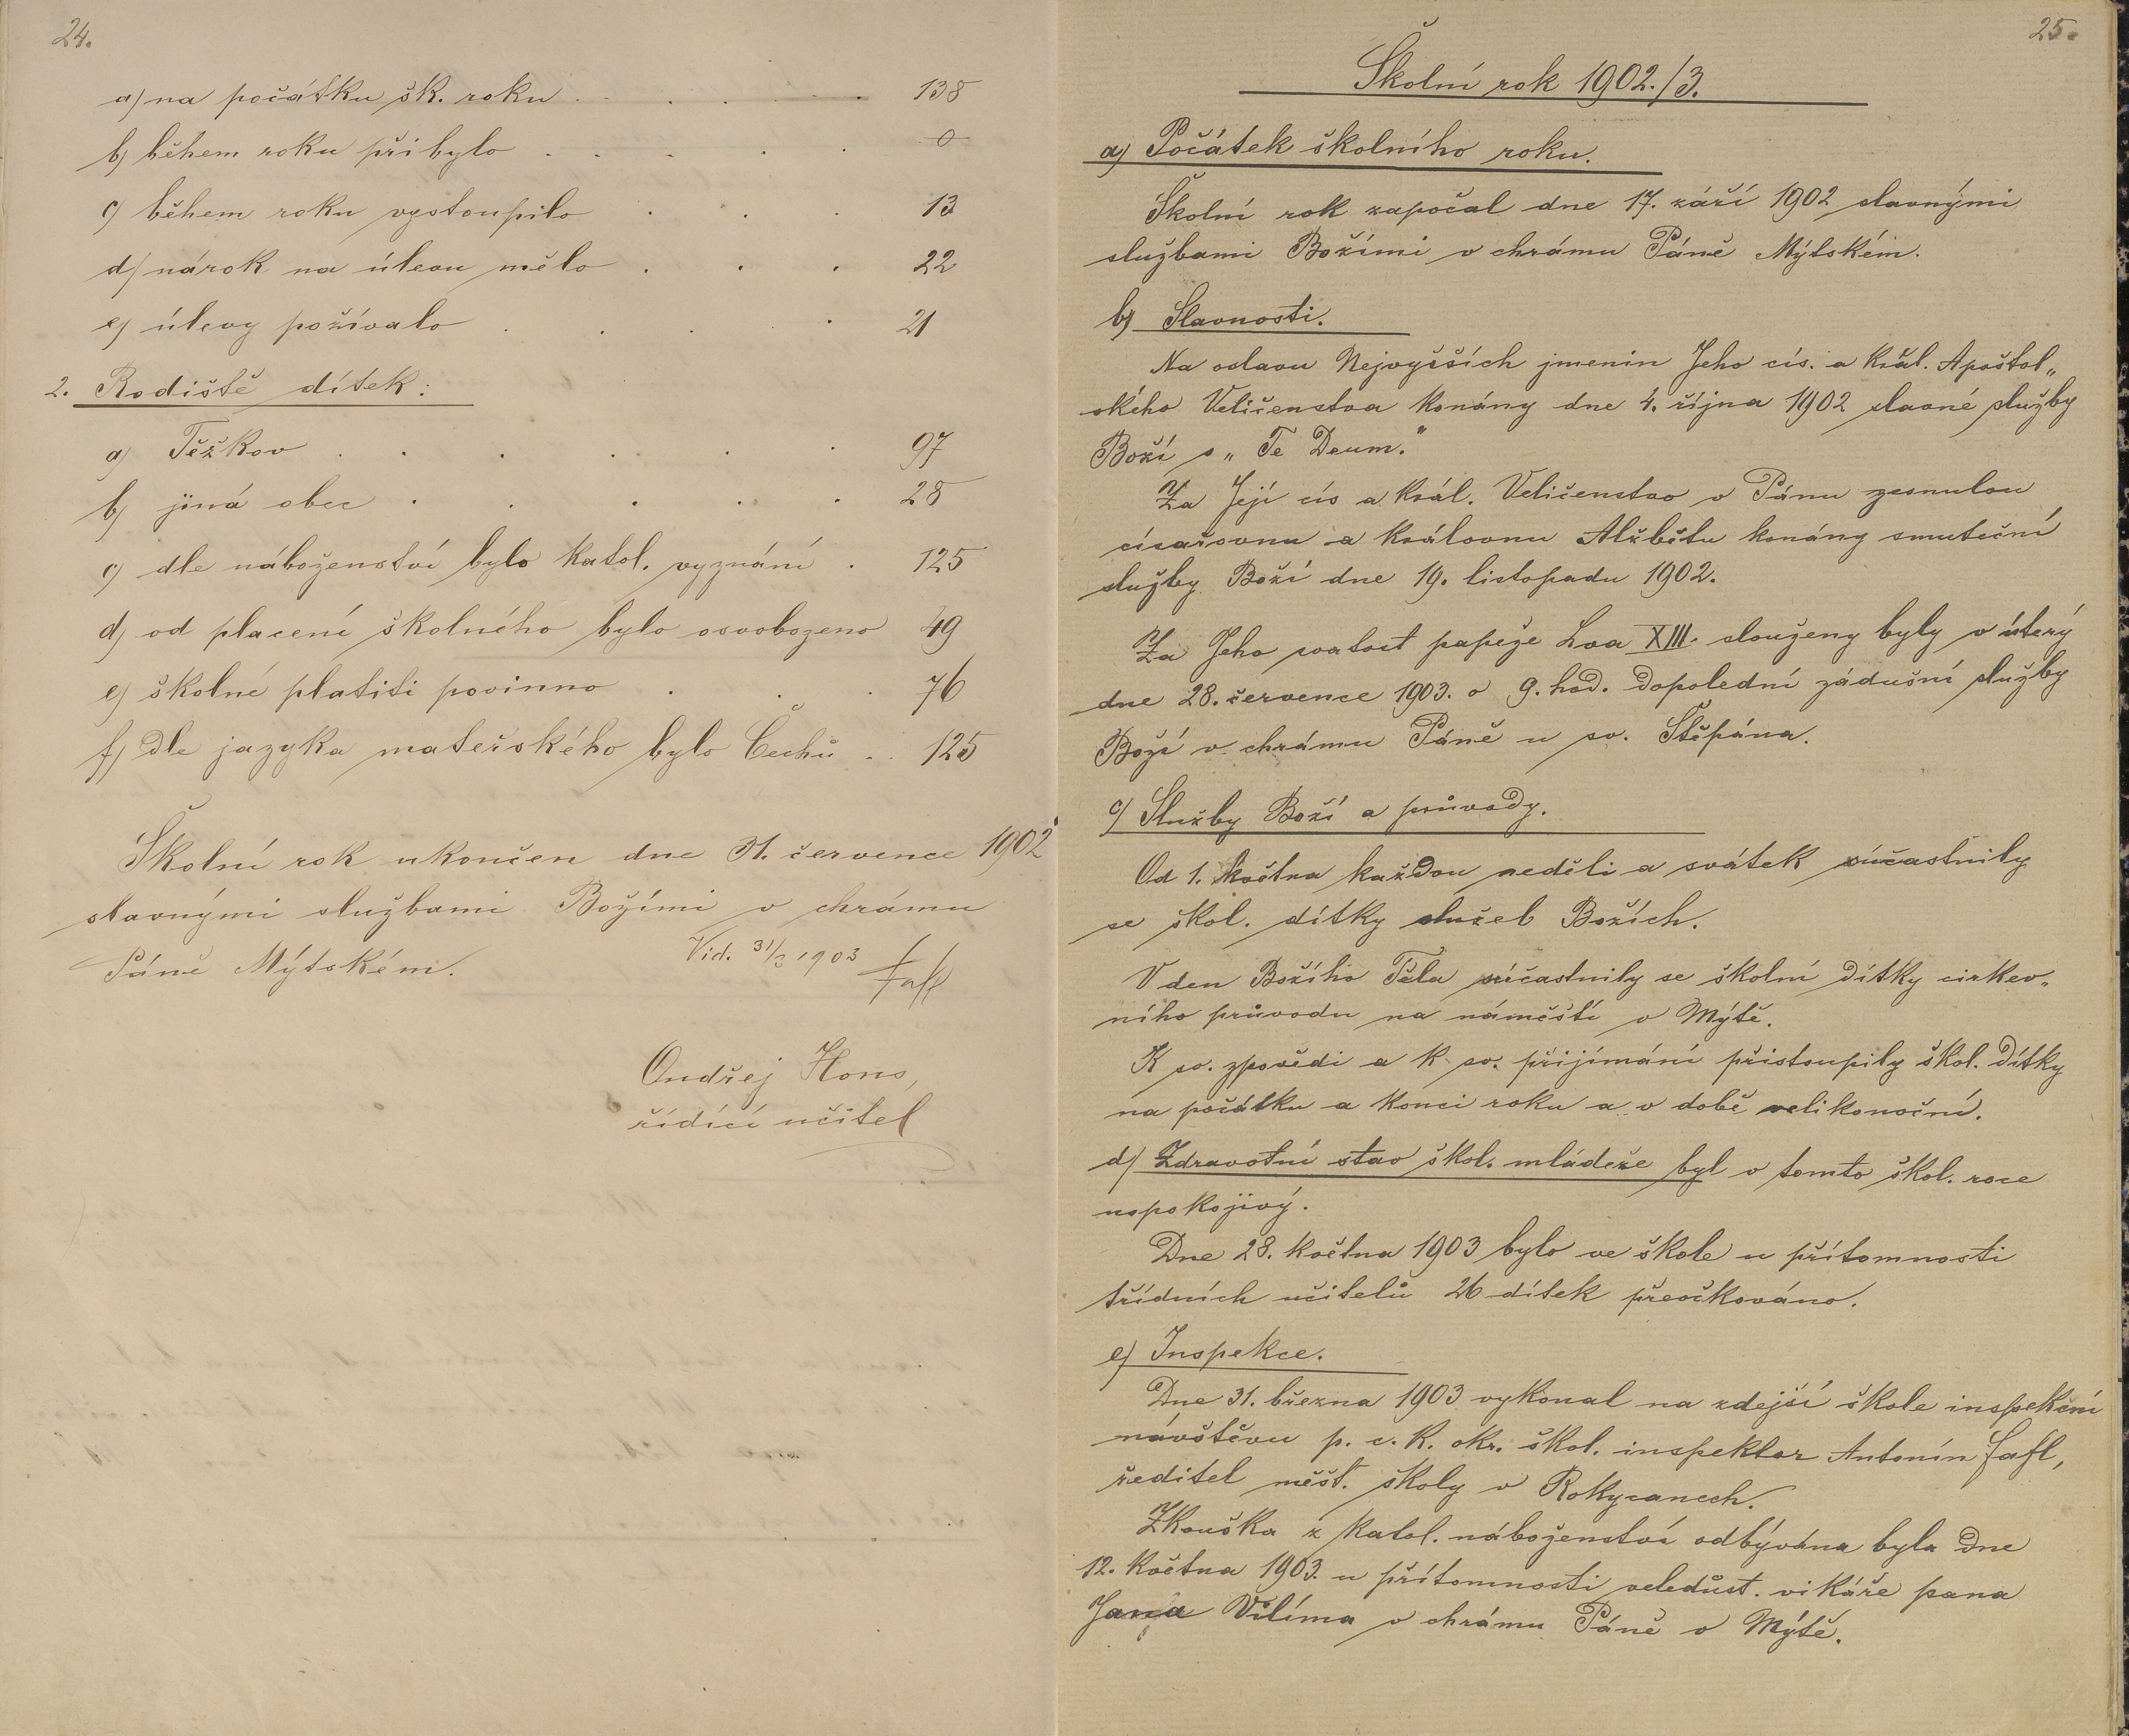 24.
a) na počátku šk. roku . . . . . 138
b) během roku přibylo . . . . . 0
c) během roku vystoupilo . . . 13
d) nárok na úlevu mělo . . . 22
e) úlevy požívalo . . . . 21
2. Rodiště dítek:
a) Těžkov . . . . . . 97
b) jiná obec . . . . . 28
c) dle náboženství bylo katol. vyznání . 125
d) od placení školného bylo osvobozeno 49
e) školné platiti povinno . . . 76
f) dle jazyka mateřského bylo Čechů . . 125
Školní rok ukončen dne 31. července 1902
slavnými službami Božími v chrámu
Páně Mýtském.
Vid. 31/3 1903
Fafl
Ondřej Hons,
řídící učitel
25.
Školní rok 1902./3.
a) Počátek školního roku.
Školní rok započal dne 17. září 1902 slavnými
službami Božími v chrámu Páně Mýtském.
b) Slavnosti.
Na oslavu Nejvyšších jmenin Jeho cís. a král. Apoštol„
ského Veličenstva konány dne 4. října 1902 slavné služby
Boží s „Te Deum."
Za Její cís a král. Veličenstvo v Pánu zesnulou
císařovnu a královnu Alžbětu konány smuteční
služby Boží dne 19. listopadu 1902.
Za Jeho svatost papeže Lva XIII. slouženy byly v úterý
dne 28. července 1903. o 9. hod. dopolední zádušní služby
Boží v chrámu Páně u sv. Štěpána.
c) Služby Boží a průvody.
Od 1. května každou neděli a svátek súčastnily
se škol. dítky služeb Božích.
V den Božího Těla súčastnily se školní dítky církev„
ního průvodu na náměstí v Mýtě.
K sv. zpovědi a k sv. přijímání přistoupily škol. dítky
na počátku a konci roku a v době velikonoční.
d) Zdravotní stav škol. mládeže byl v tomto škol. roce
uspokojivý.
Dne 28. května 1903 bylo ve škole u přítomnosti
třídních učitelů 26 dítek přeočkováno.
e) Inspekce.
Dne 31. března 1903 vykonal na zdejší škole inspekční
návštěvu p. c. k. okr. škol. inspektor Antonín Fafl,
ředitel měšť. školy v Rokycanech.
Zkouška z katol. náboženství odbývána byla dne
12. května 1903. u přítomnosti veledůst. vikáře pana
Jana Vilíma v chrámu Páně v Mýtě.